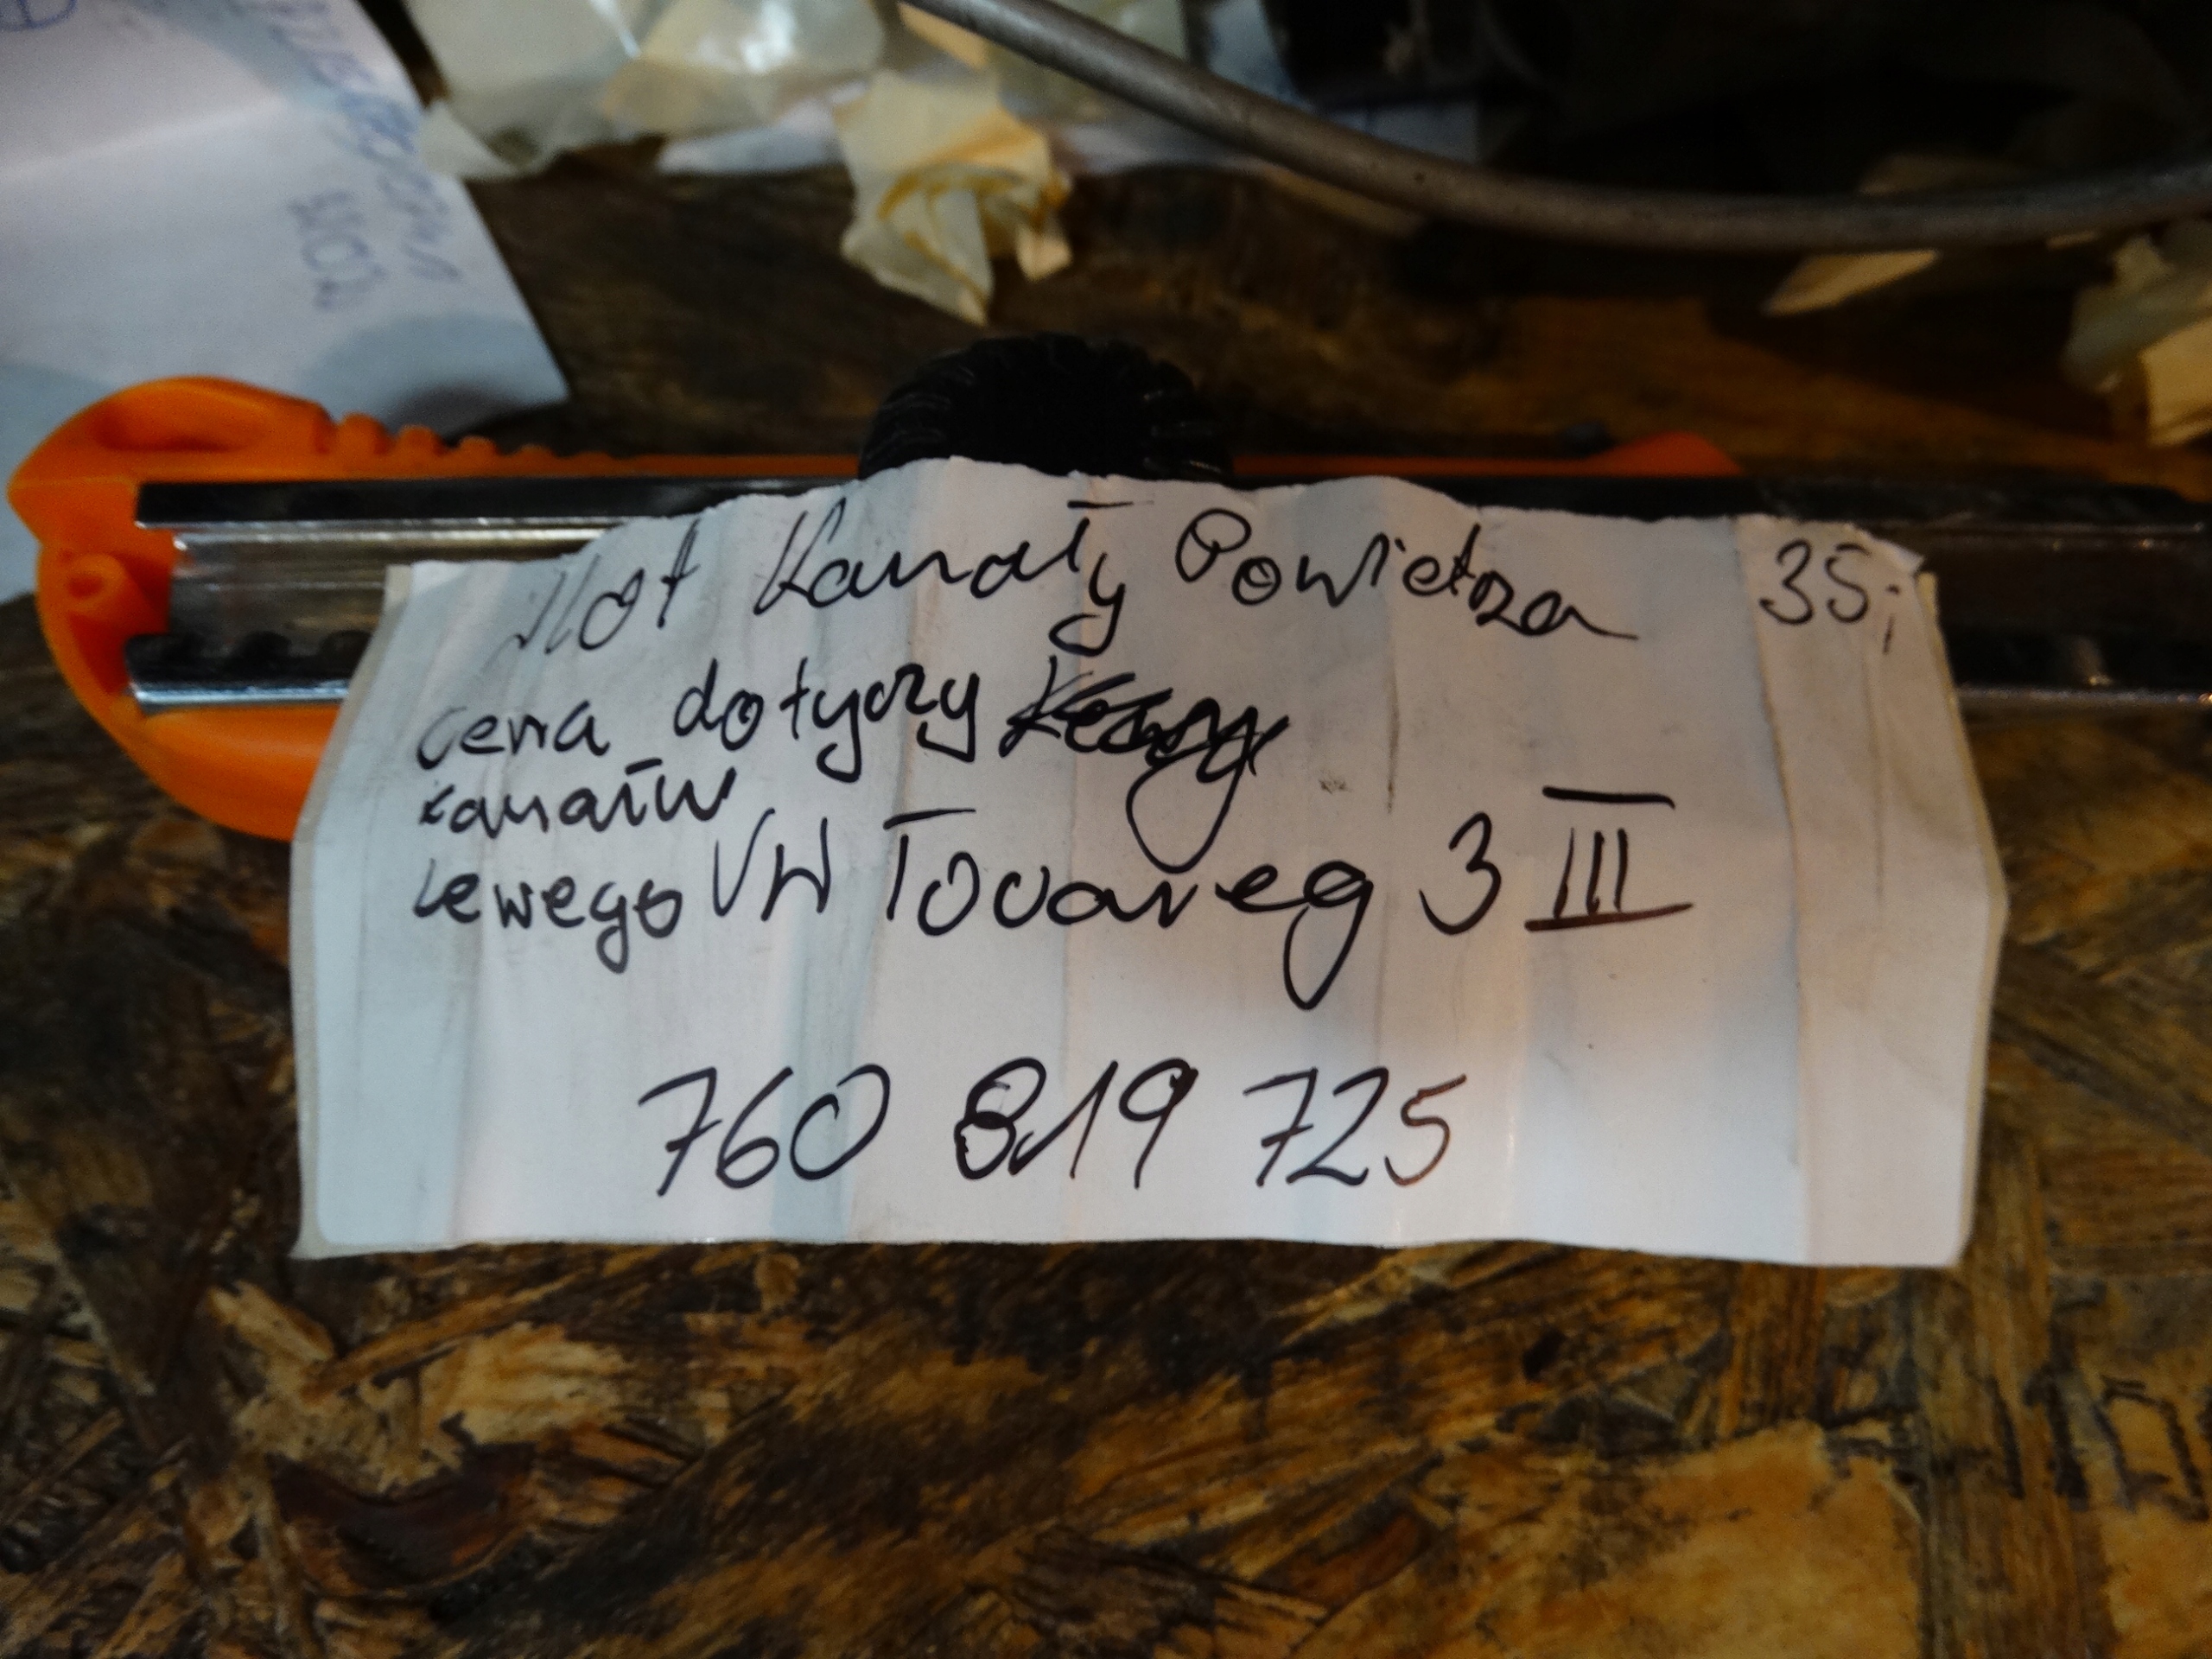 Wlot Kanały Powietrza 35,-
cena dotyczy
kanałw
Lewego VW Touareg 3 III
760 819 725